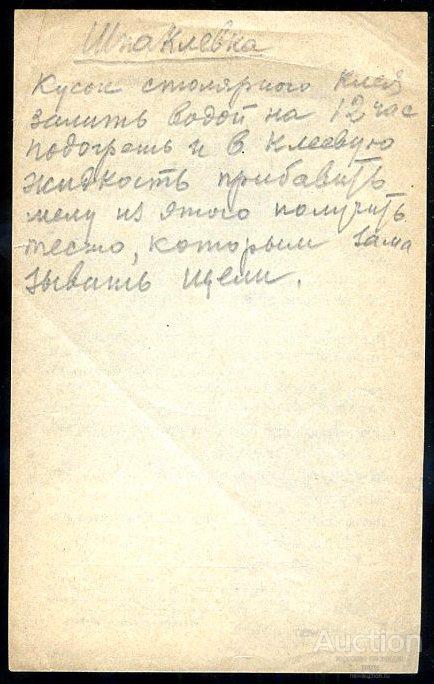 Шпаклевка
Кусок столярного клея
залить водой на 12 час
подогреть и в клеевую
жидкость прибавить
мелу из этого получить
тесто, которым зама
зывать щели.
Auction